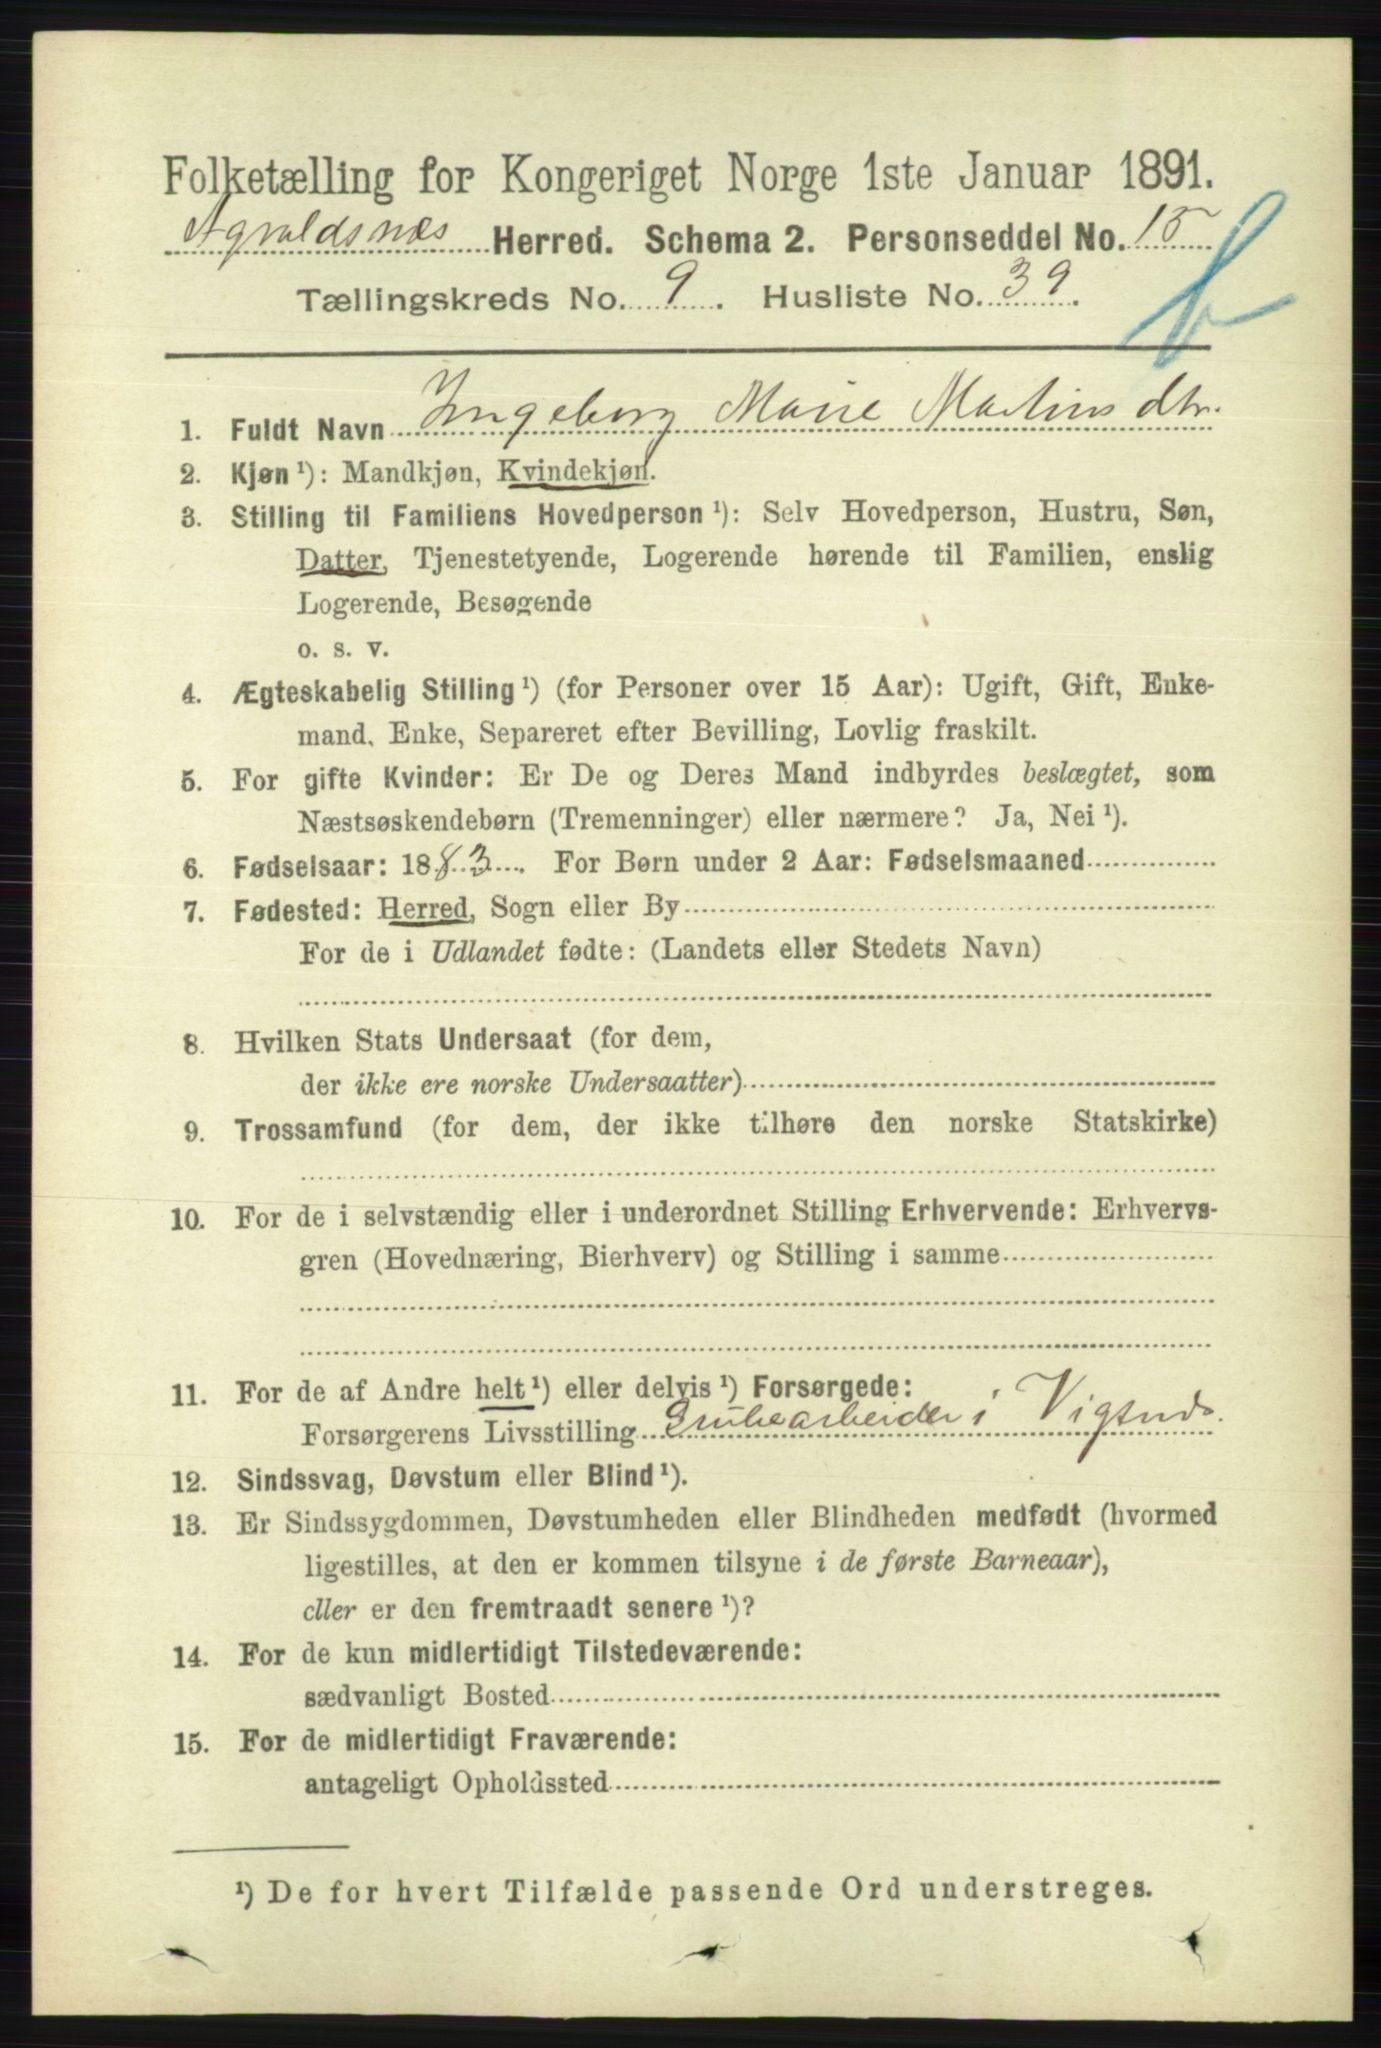 Folketælling for Kongeriget Norge 1ste Januar 1891.
Agvaldsnæs Herred. Schema 2. Personseddel No. 15
Tællingskreds No. 9. Husliste No. 39.
1. Fuldt Navn Ingeborg Marie Martinsdtr.
2. Kjøn¹): Mandkjøn, Kvindekjøn.
3. Stilling til Familiens Hovedperson¹): Selv Hovedperson, Hustru, Søn,
Datter, Tjenestetyende, Logerende hørende til Familien, enslig
Logerende, Besøgende
o. s. v.
4. Ægteskabelig Stilling¹) (for Personer over 15 Aar): Ugift, Gift, Enke-
mand, Enke, Separeret efter Bevilling, Lovlig fraskilt.
5. For gifte Kvinder: Er De og Deres Mand indbyrdes beslægtet, som
Næstsøskendebørn (Tremenninger) eller nærmere? Ja, Nei¹).
6. Fødselsaar: 1883. For Børn under 2 Aar: Fødselsmaaned
7. Fødested: Herred, Sogn eller By
For de i Udlandet fødte: (Landets eller Stedets Navn)
8. Hvilken Stats Undersaat (for dem,
der ikke ere norske Undersaatter)
9. Trossamfund (for dem, der ikke tilhøre den norske Statskirke)
10. For de i selvstændig eller i underordnet Stilling Erhvervende: Erhvervs-
gren (Hovednæring, Bierhverv) og Stilling i samme
11. For de af Andre helt¹) eller delvis¹) Forsørgede:
Forsørgerens Livsstilling Grubearbeider i Vigsnds.
12. Sindssvag, Døvstum eller Blind¹).
13. Er Sindssygdommen, Døvstumheden eller Blindheden medfødt (hvormed
ligestilles, at den er kommen tilsyne i de første Barneaar),
eller er den fremtraadt senere¹)?
14. For de kun midlertidigt Tilstedeværende:
sædvanligt Bosted
15. For de midlertidigt Fraværende:
antageligt Opholdssted
¹) De for hvert Tilfælde passende Ord understreges.